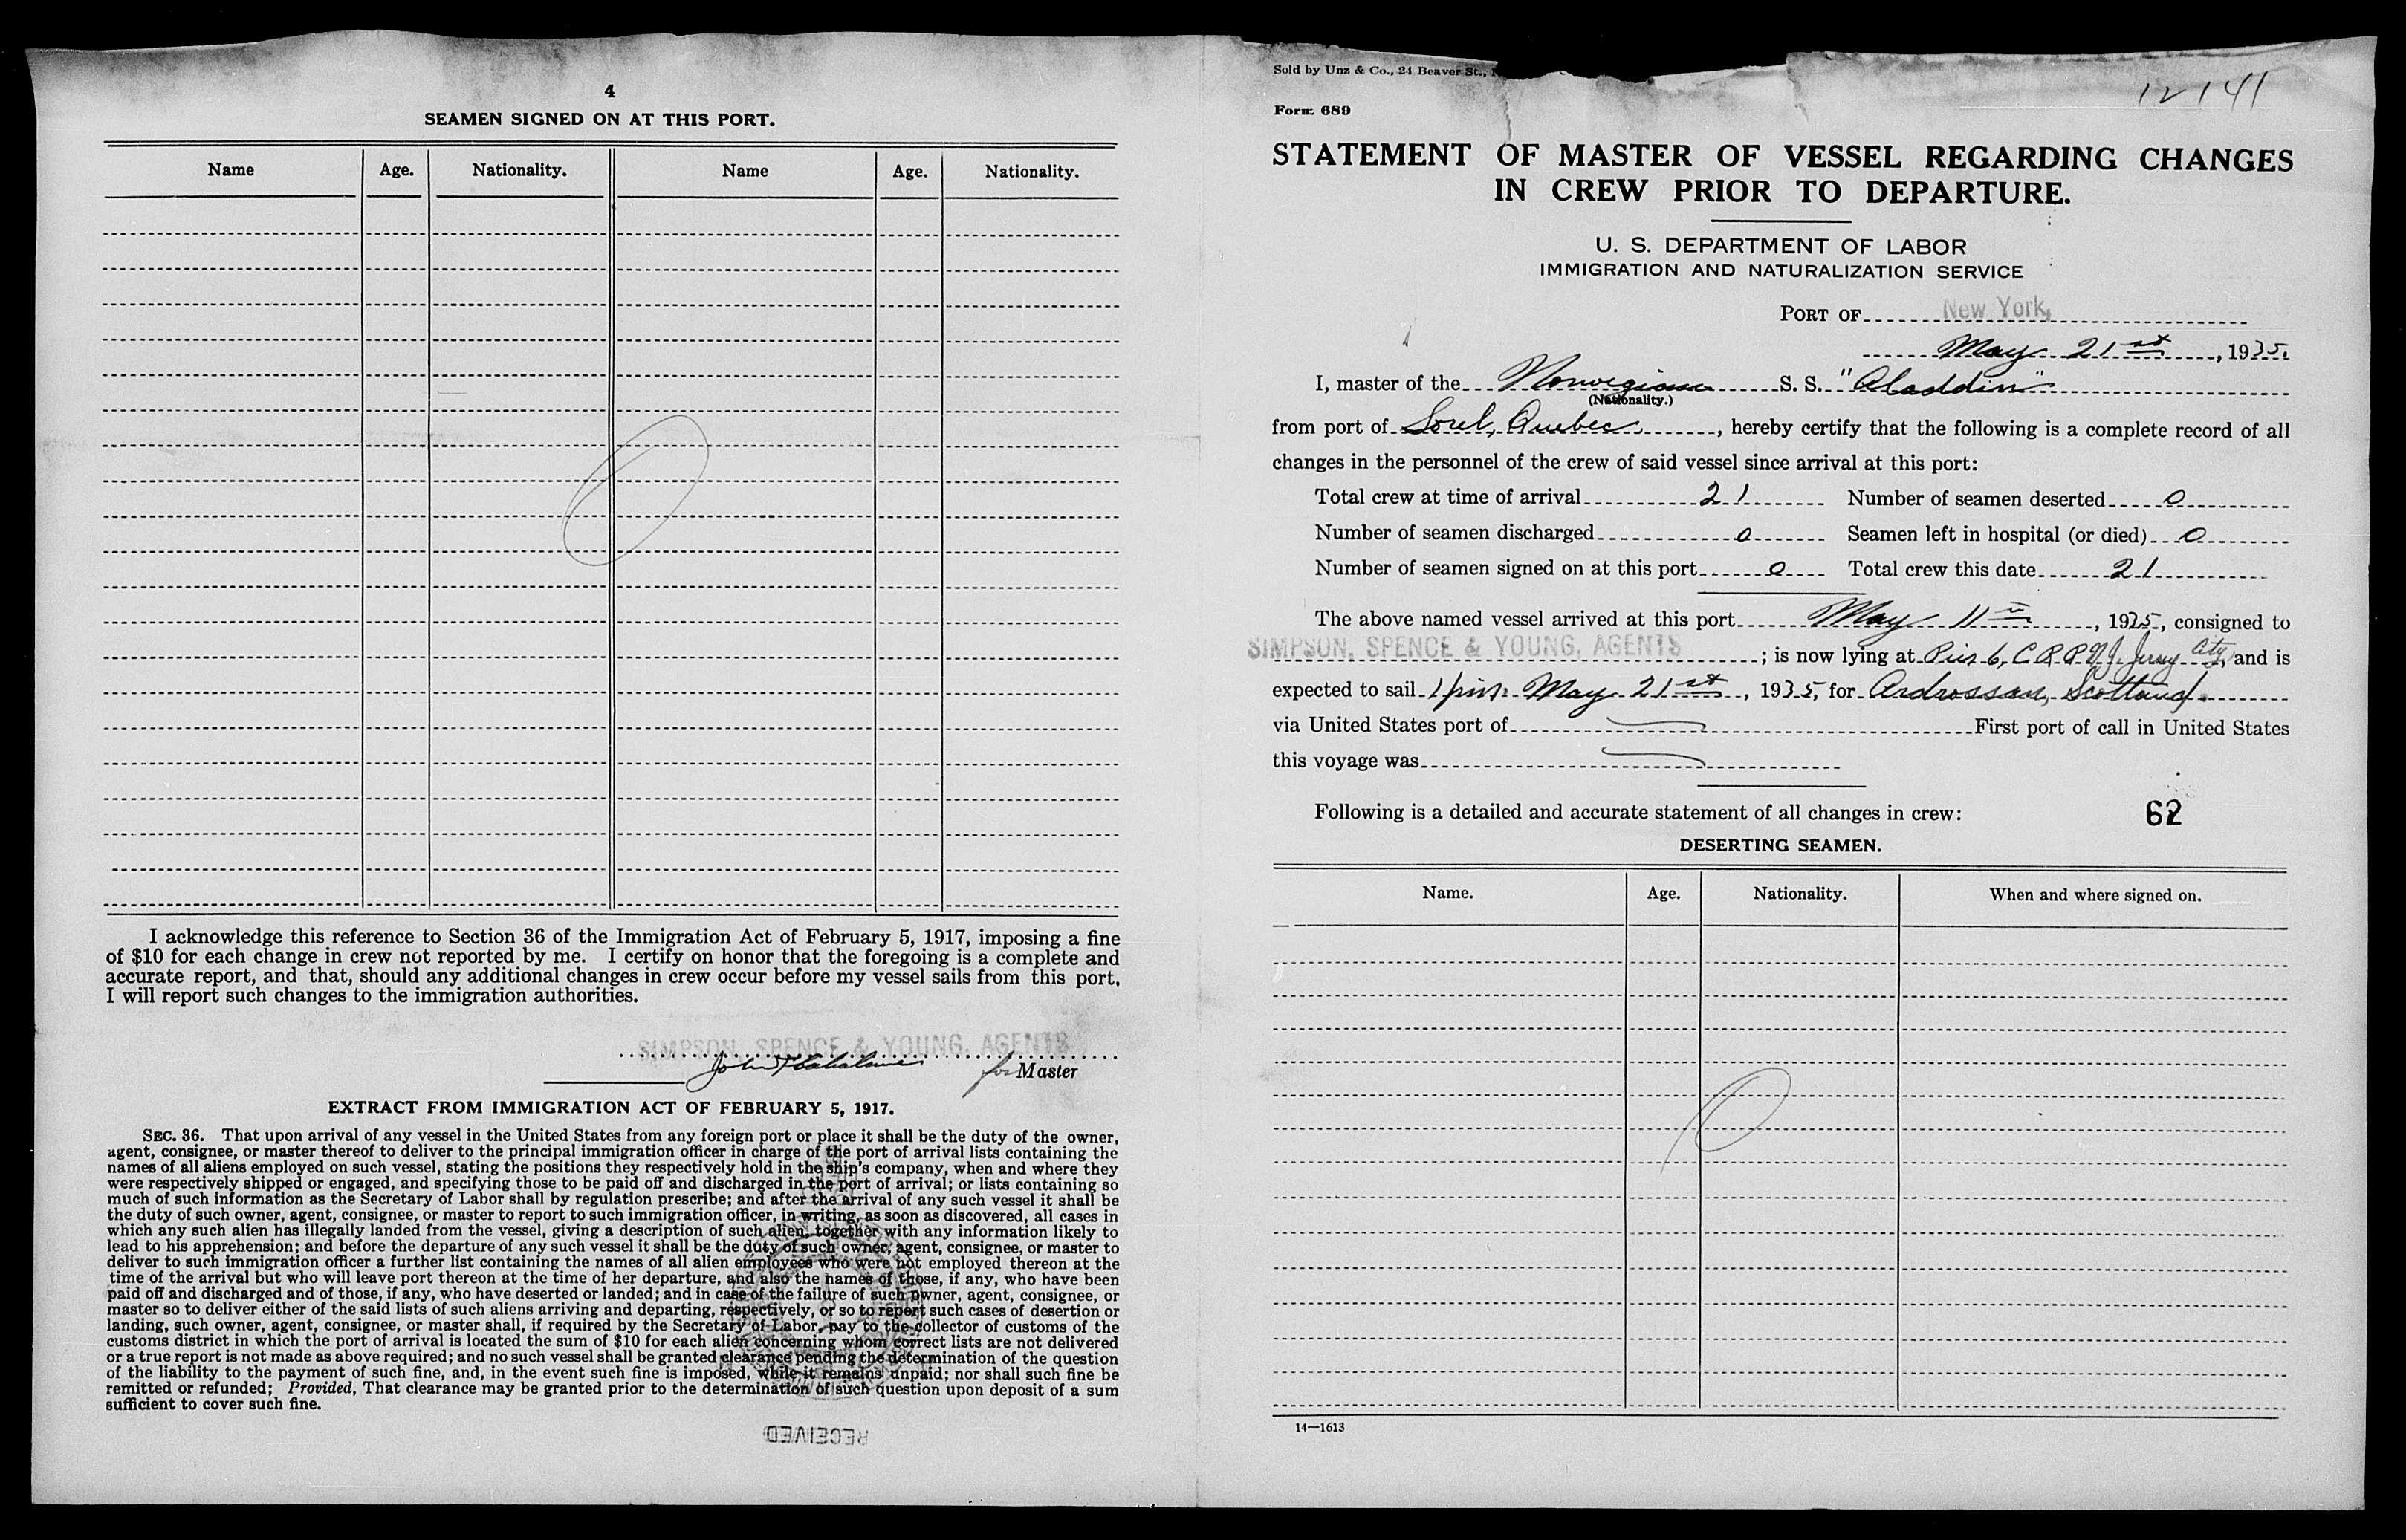 4
SEAMEN SIGNED ON AT THIS PORT.
Name Age. Nationality. Name Age. Nationality.
0
I acknowledge this reference to Section 36 of the Immigration Act of February 5, 1917, imposing a fine
of $10 for each change in crew not reported by me. I certify on honor that the foregoing is a complete and
accurate report, and that, should any additional changes in crew occur before my vessel sails from this port,
I will report such changes to the immigration authorities.
SIMPSON, SPENCE & YOUNG, AGENTS
John for Master
EXTRACT FROM IMMIGRATION ACT OF FEBRUARY 5, 1917.
SEC. 36. That upon arrival of any vessel in the United States from any foreign port or place it shall be the duty of the owner,
agent, consignee, or master thereof to deliver to the principal immigration officer in charge of the port of arrival lists containing the
names of all aliens employed on such vessel, stating the positions they respectively hold in the ship's company, when and where they
were respectively shipped or engaged, and specifying those to be paid off and discharged in the port of arrival; or lists containing so
much of such information as the Secretary of Labor shall by regulation prescribe; and after the arrival of any such vessel it shall be
the duty of such owner, agent, consignee, or master to report to such immigration officer, in writing, as soon as discovered, all cases in
which any such alien has illegally landed from the vessel, giving a description of such alien, together with any information likely to
lead to his apprehension; and before the departure of any such vessel it shall be the duty of such owner, agent, consignee, or master to
deliver to such immigration officer a further list containing the names of all alien employees who were not employed thereon at the
time of the arrival but who will leave port thereon at the time of her departure, and also the names of those, if any, who have been
paid off and discharged and of those, if any, who have deserted or landed; and in case of the failure of such owner, agent, consignee, or
master so to deliver either of the said lists of such aliens arriving and departing, respectively, or so to report such cases of desertion or
landing, such owner, agent, consignee, or master shall, if required by the Secretary of Labor, pay to the collector of customs of the
customs district in which the port of arrival is located the sum of $10 for each alien concerning whom correct lists are not delivered
or a true report is not made as above required; and no such vessel shall be granted clearance pending the determination of the question
of the liability to the payment of such fine, and, in the event such fine is imposed, while it remains unpaid; nor shall such fine be
remitted or refunded; Provided, That clearance may be granted prior to the determination of such question upon deposit of a sum
sufficient to cover such fine.
RECEIVED
Sold by Unz & Co., 24 Beaver St.,
12141
Form 689
STATEMENT OF MASTER OF VESSEL REGARDING CHANGES
IN CREW PRIOR TO DEPARTURE.
U. S. DEPARTMENT OF LABOR
IMMIGRATION AND NATURALIZATION SERVICE
PORT OF New York,
May 21st, 1935.
I, master of the Norwegian S. S. "Aladdin"
(Nationality.)
from port of Sorel, Quebec, hereby certify that the following is a complete record of all
changes in the personnel of the crew of said vessel since arrival at this port:
Total crew at time of arrival 21 Number of seamen deserted 0
Number of seamen discharged 0 Seamen left in hospital (or died) 0
Number of seamen signed on at this port 0 Total crew this date 21
The above named vessel arrived at this port May 11th, 1935, consigned to
SIMPSON, SPENCE & YOUNG, AGENTS; is now lying at Pier 6, C.R.R. N.J. Jersey City, and is
expected to sail 1 pm. May 21st, 1935, for Ardrossan, Scotland.
via United States port of First port of call in United States
this voyage was
Following is a detailed and accurate statement of all changes in crew: 62
DESERTING SEAMEN.
Name. Age. Nationality. When and where signed on.
0
14—1613